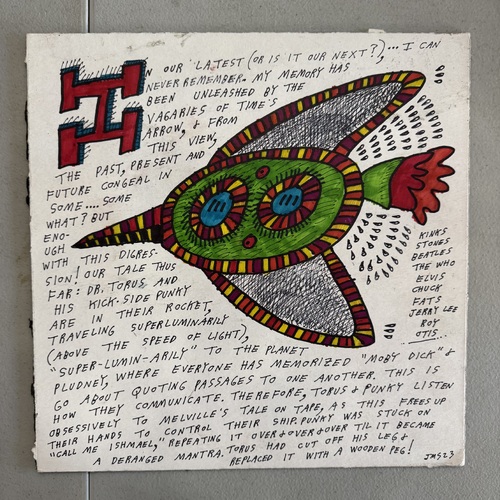 IN OUR LATEST (OR IS IT OUR NEXT?),... I CAN
NEVER REMEMBER. MY MEMORY HAS
BEEN UNLEASHED BY THE
VAGARIES OF TIME'S
ARROW, & FROM
THIS VIEW,
THE PAST, PRESENT AND,
FUTURE CONGEAL IN
SOME.... SOME
WHAT? BUT
ENO-
UGH
WITH THIS DIGRES-
SION! OUR TALE THUS
FAR: DR. TORUS AND
HIS KICK-SIDE PUNKY
ARE IN THEIR ROCKET,
TRAVELING SUPERLUMINARILY
(ABOVE THE SPEED OF LIGHT),
"SUPER-LUMIN-ARILY" TO THE PLANET
PLUDNEY, WHERE EVERYONE HAS MEMORIZED "MOBY DICK" &
GO ABOUT QUOTING PASSAGES TO ONE ANOTHER. THIS IS
HOW THEY COMMUNICATE. THEREFORE, TORUS & PUNKY LISTEN
OBSESSIVELY TO MELVILLE'S TALE ON TAPE, AS THIS FREES UP
THEIR HANDS TO CONTROL THEIR SHIP. PUNKY WAS STUCK ON
"CALL ME ISHMAEL," REPEATING IT OVER & OVER & OVER TIL IT BECAME
A DERANGED MANTRA. TORUS HAD CUT OFF HIS LEG &
REPLACED IT WITH A WOODEN PEG!
KINKS
STONES
BEATLES
THE WHO
ELVIS
CHUCK
FATS
JERRY LEE
ROY
OTIS
JMS23